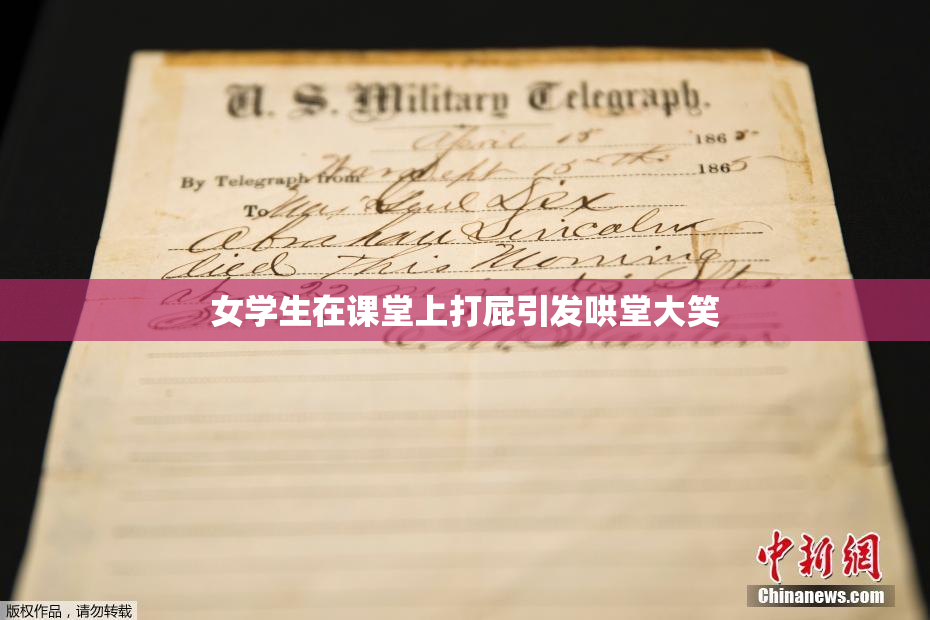 U. S. Military Telegraph.
April 15 1865
By Telegraph from War Dept 15th 1865
To Maj Genl Dix
Abraham Lincoln
died This Morning
at 22 minutes after
女学生在课堂上打屁引发哄堂大笑
E. M. Stanton
中新网
Chinanews.com
版权作品，请勿转载